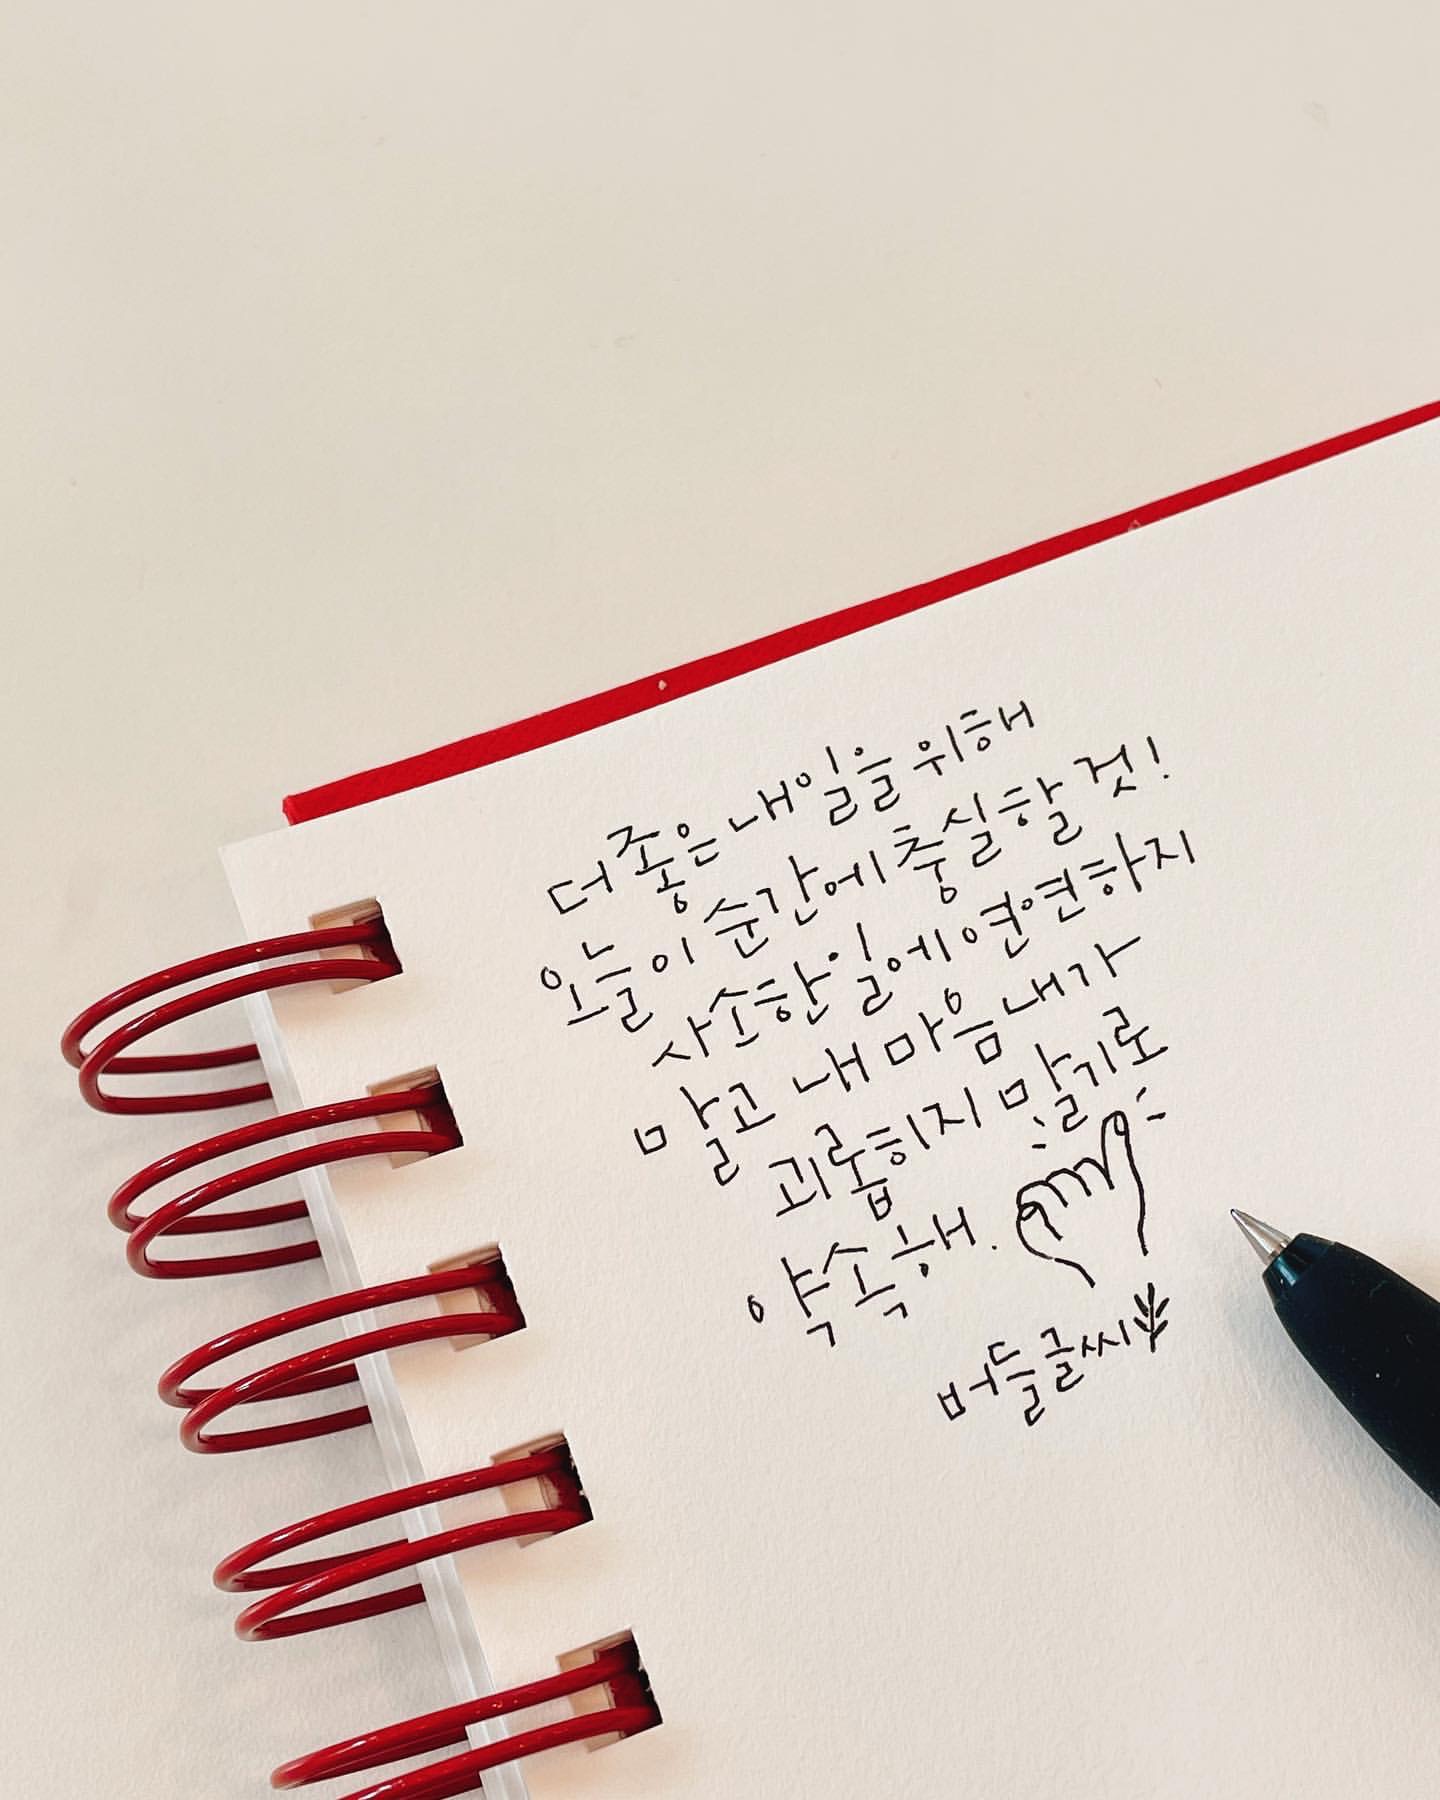 더 좋은 내일을 위해
오늘 이 순간에 충실할 것!
사소한 일에 연연하지
말고 내 마음 내가
괴롭히지 말기로
약속해.
버들글씨